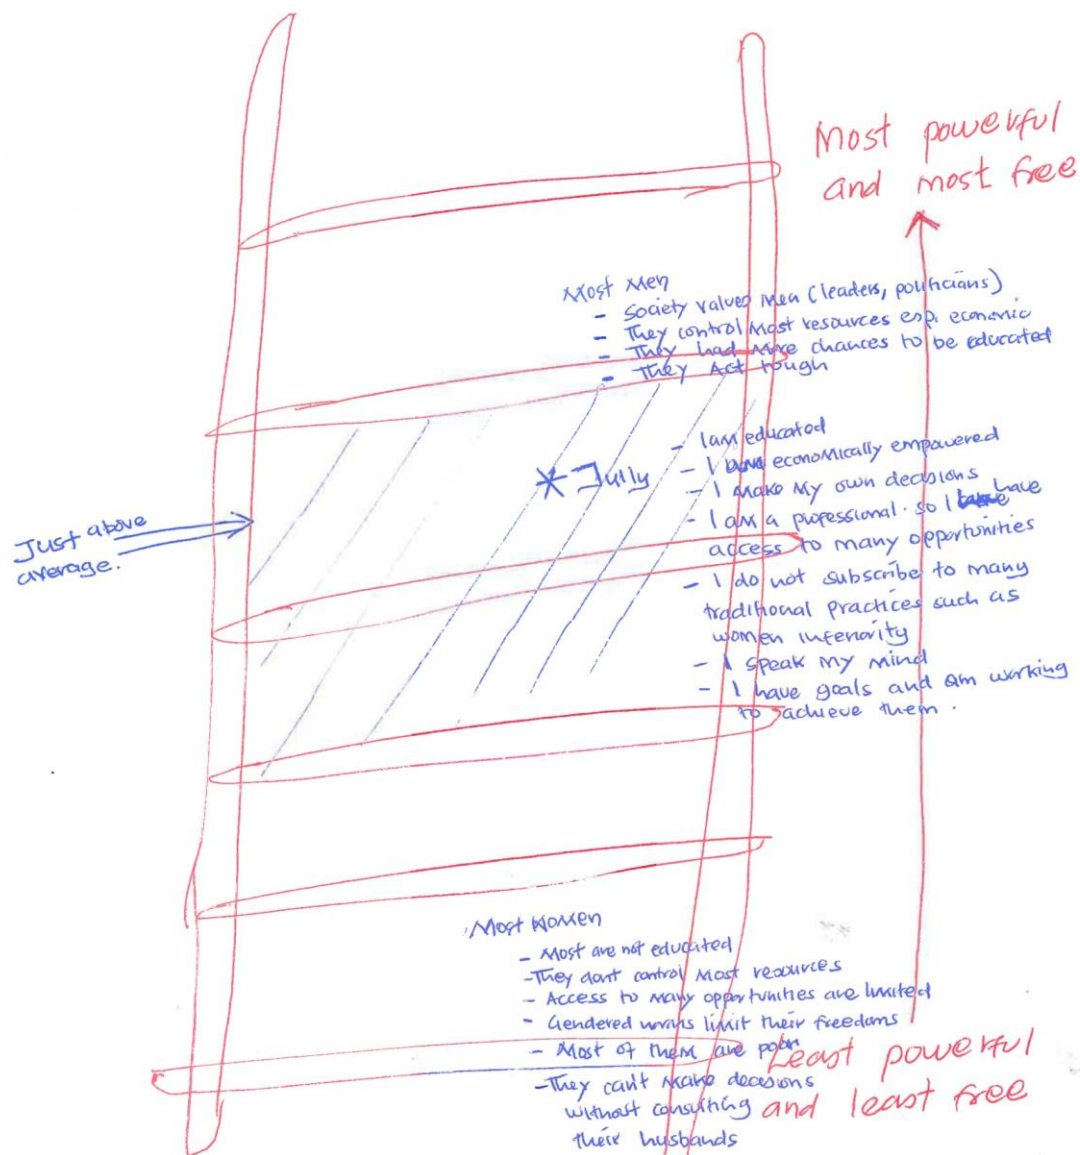 Most powerful
and most free
Most Men
- Society values Men (leaders, politicians)
- They control Most resources esp. economic
- They had more chances to be educated
- They Act tough
- I am educated
- I am economically empowered
- I make My own decisions
- I am a professional. so I have have
access to many opportunities
- I do not subscribe to many
traditional practices such as
women inferiority
- I speak my mind
- I have goals and am working
to achieve them.
* Jully
Just above
average.
Most Women
- Most are not educated
- They dont control Most resources
- Access to many opportunities are limited
- Gendered norms limit their freedoms
- Most of them are poor
- They can't make decisions
without consulting
their husbands
Least powerful
and least free